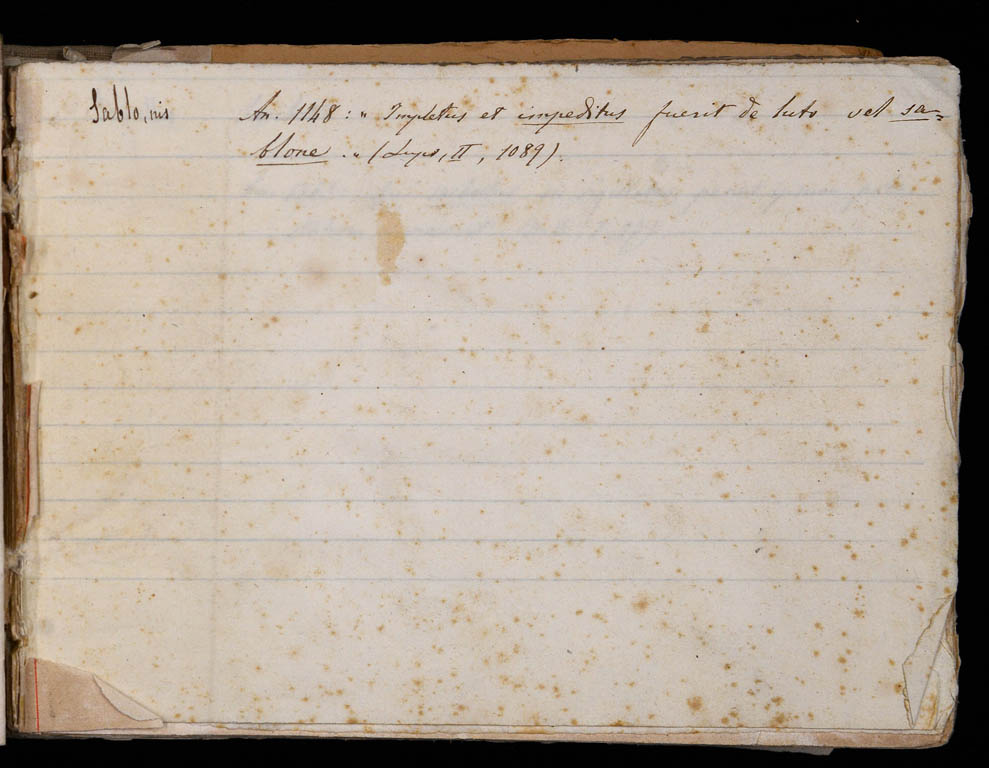 Sablo, nis An. 1148: " Impletus et impeditus fuerit de luto vel sa=
blone. " (Lupo, II, 1089).